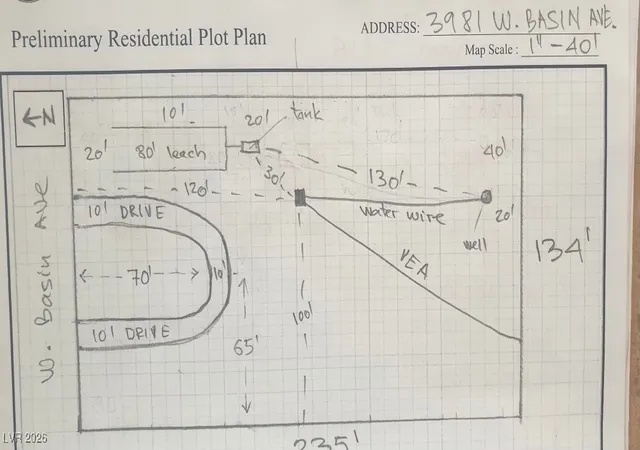 Preliminary Residential Plot Plan
ADDRESS: 3981 W. BASIN AVE.
Map Scale: 1" - 40'
N
10'
20'
tank
20'
80' leach
40'
30'
130'
120'
water wire
20'
well
10' DRIVE
134'
VEA
W. Basin AVE
70'
10'
100'
10' DRIVE
65'
235'
LVR 2026